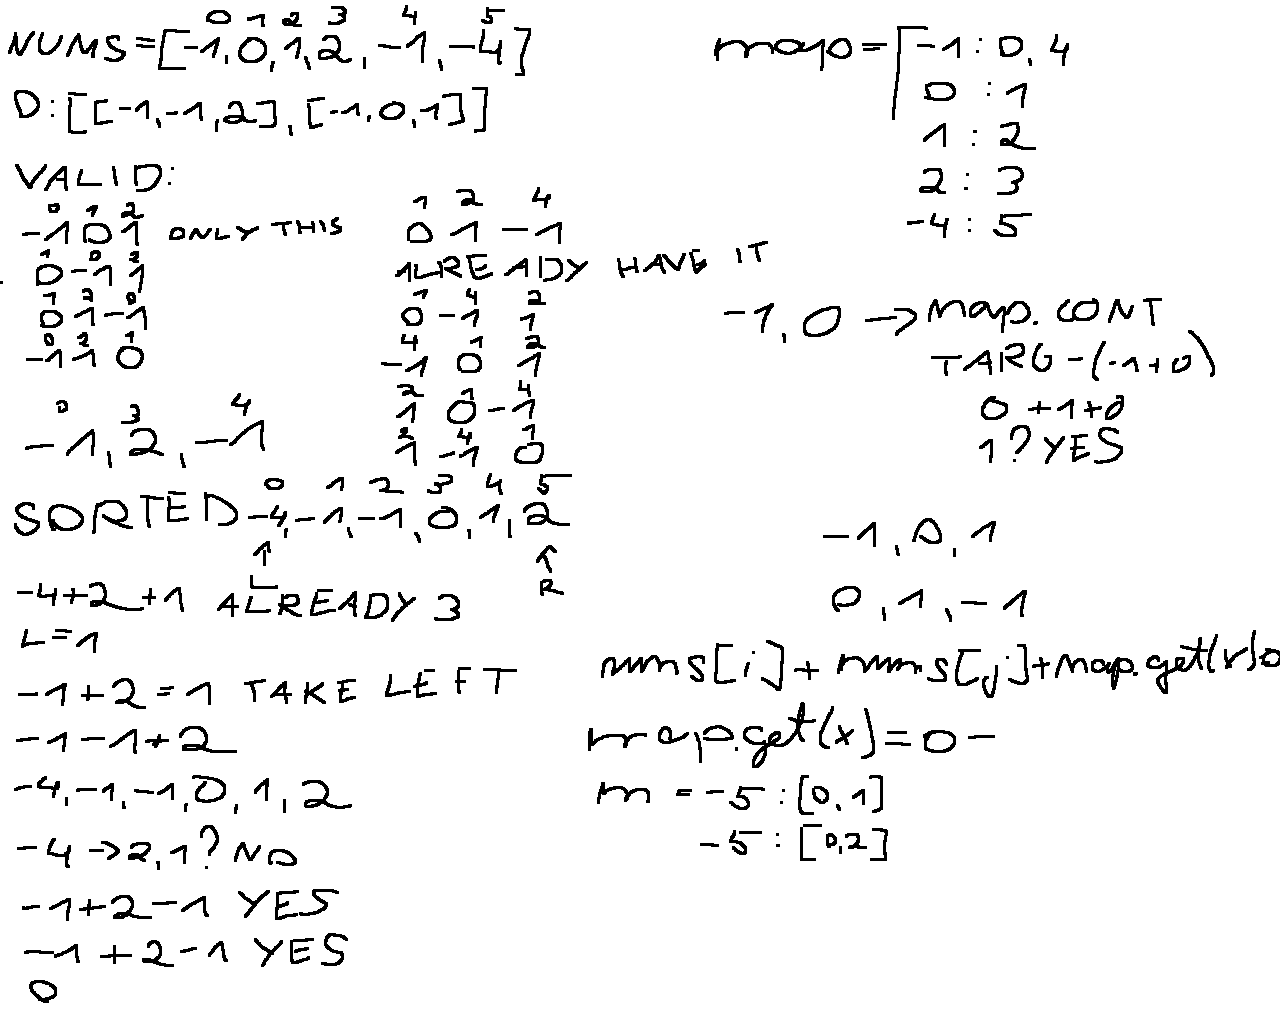 0 1 2 3 4 5
NUMS=[-1,0,1,2,-1,-4]
O:[[-1,-1,2],[-1,0,1]]
VALID:
0 1 2
-1 0 1 ONLY THIS
1 0 2
0 -1 1
1 2 0
0 1 -1
0 2 1
-1 1 0
0 3 4
-1,2,-1
1 2 4
0 1 -1
ALREADY HAVE IT
1 4 2
0 -1 1
4 1 2
-1 0 1
2 1 4
1 0 -1
2 4 1
1 -1 0
0 1 2 3 4 5
SORTED -4,-1,-1,0,1,2
L R
-4+2+1 ALREADY 3
L=1
-1+2=1 TAKE LEFT
-1-1+2
-4,-1,-1,0,1,2
-4->2,1? NO
-1+2-1 YES
-1+2-1 YES
0
map=[-1:0,4
0:1
1:2
2:3
-4:5
-1,0->map.CONT
TARG-(-1+0)
0+1+0
1? YES
-1,0,1
0,1,-1
nums[i]+nums[j]+map.get(x)0
map.get(x)=0-
m=-5:[0,1]
-5:[0,2]